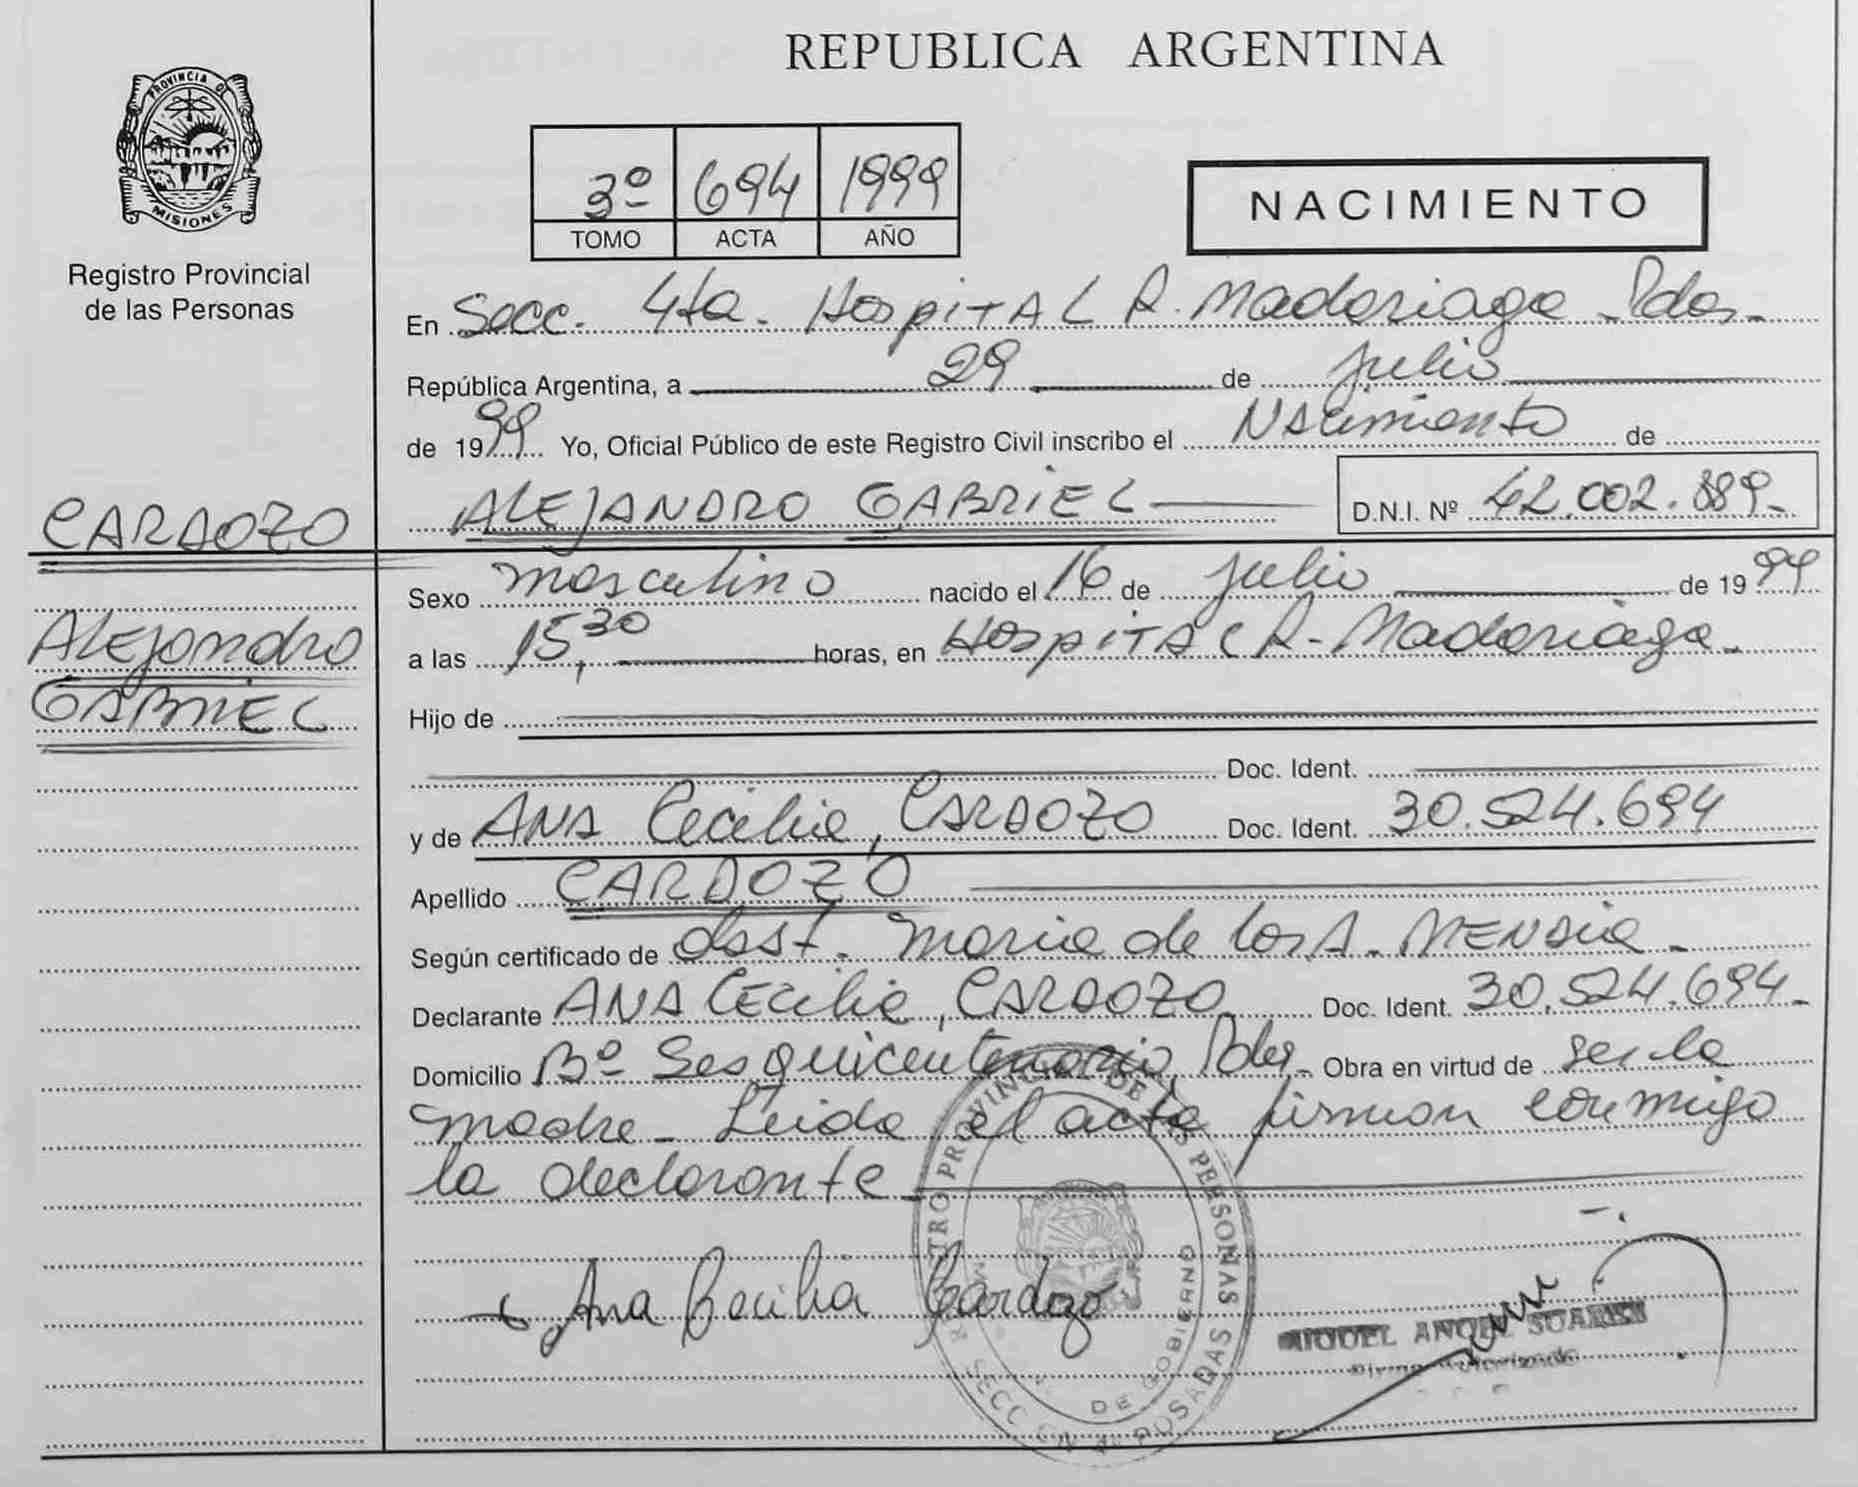 REPUBLICA ARGENTINA
PROVINCIA D
MISIONES
Registro Provincial
de las Personas
3º 694 1999
TOMO ACTA AÑO
NACIMIENTO
En Secc. 4ta. Hospital R. Madariaga - Pdas -
República Argentina, a 29 de julio
de 1999 Yo, Oficial Público de este Registro Civil inscribo el Nacimiento de
ALEJANDRO GABRIEL D.N.I. Nº 42.002.889.-
CARDOZO
Alejandro
GABRIEL
Sexo masculino nacido el 16 de julio de 1999
a las 15,30 horas, en Hospital R. Madariaga.-
Hijo de
Doc. Ident.
y de ANA Cecilia, CARDOZO Doc. Ident. 30.524.694
Apellido CARDOZO
Según certificado de obst. Maria de los A. MENDIA -
Declarante ANA Cecilia, CARDOZO Doc. Ident. 30.524.694.-
Domicilio Bº Sesquicentenario, Pdas - Obra en virtud de ser la
madre - Leida el acta firman conmigo
la declarante
Ana Cecilia Cardozo
MIGUEL ANGEL
TRO PROVINCIAL DE LAS PERSONAS
DE GOBIERNO
SECCION 4º POSADAS